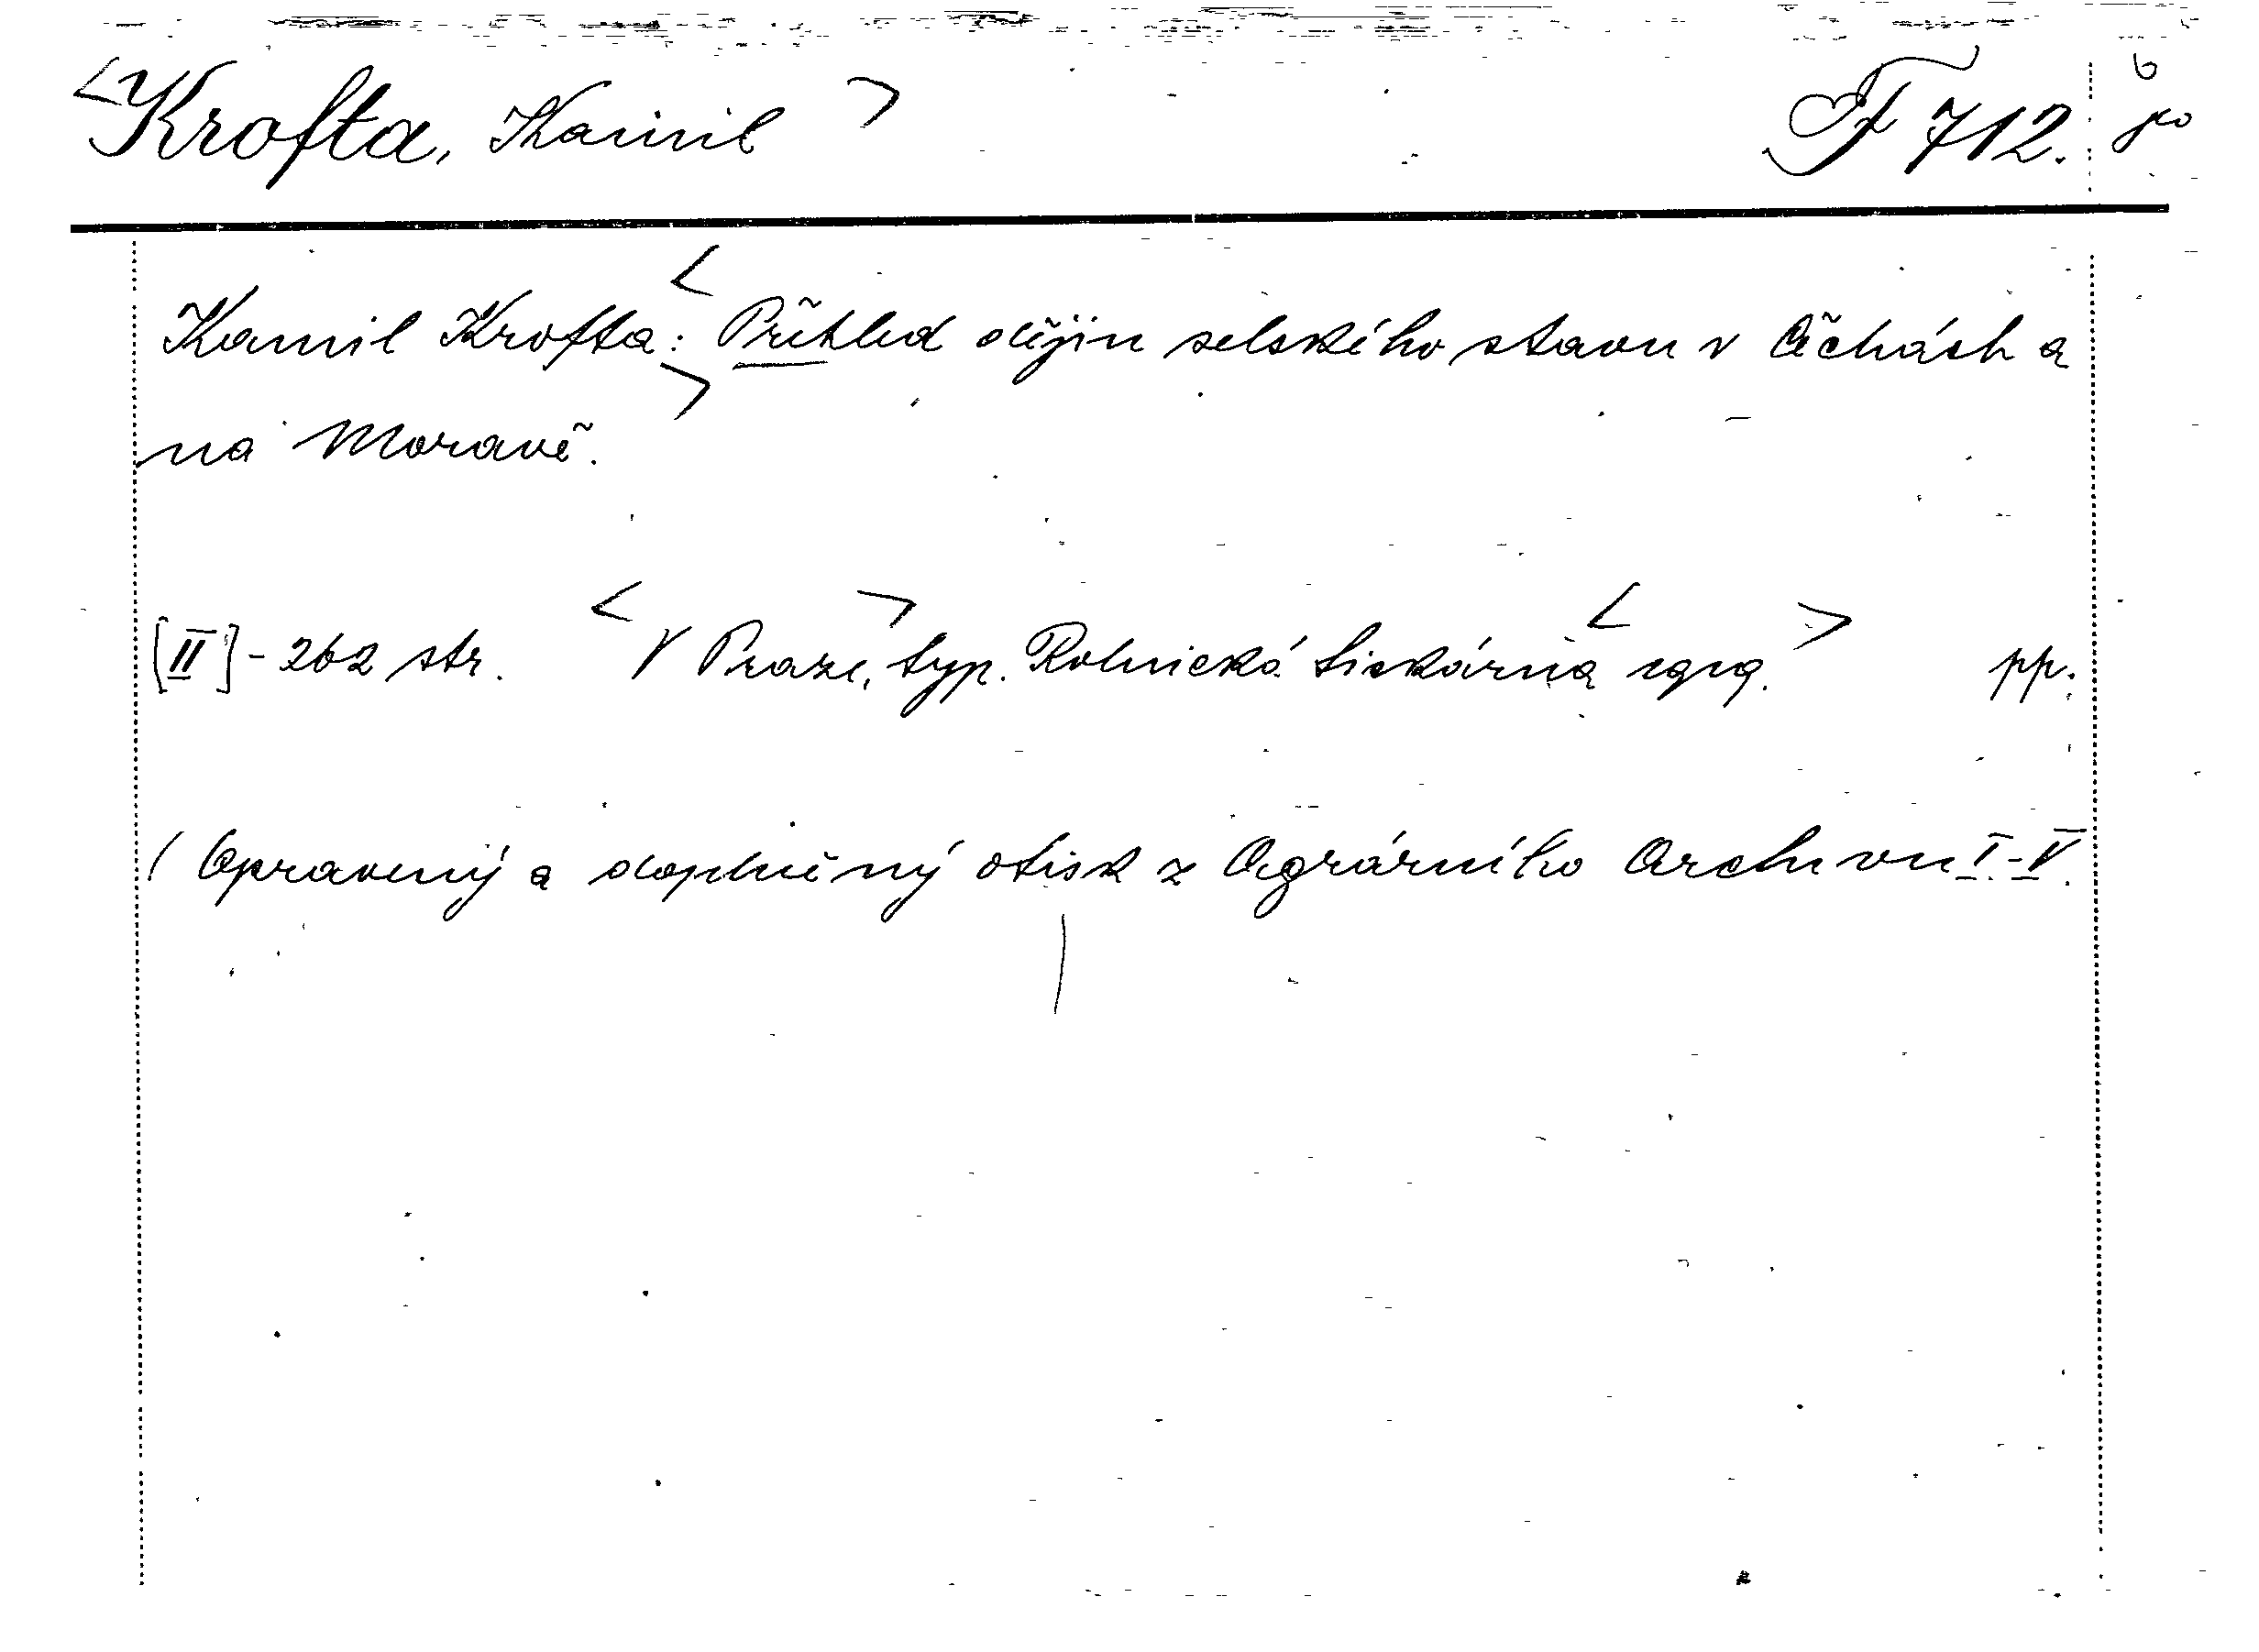 <Krofta, Kamil> F 712. 6
Kamil Krofta: <Přehled dějin selského stavu v Čechách a
na Moravě.>
[II] - 262 str. <V Praze,> typ. Rolnická tiskárna <1919.> pp.
(Opravený a doplněný otisk z Agrárního Archivu I.-V.